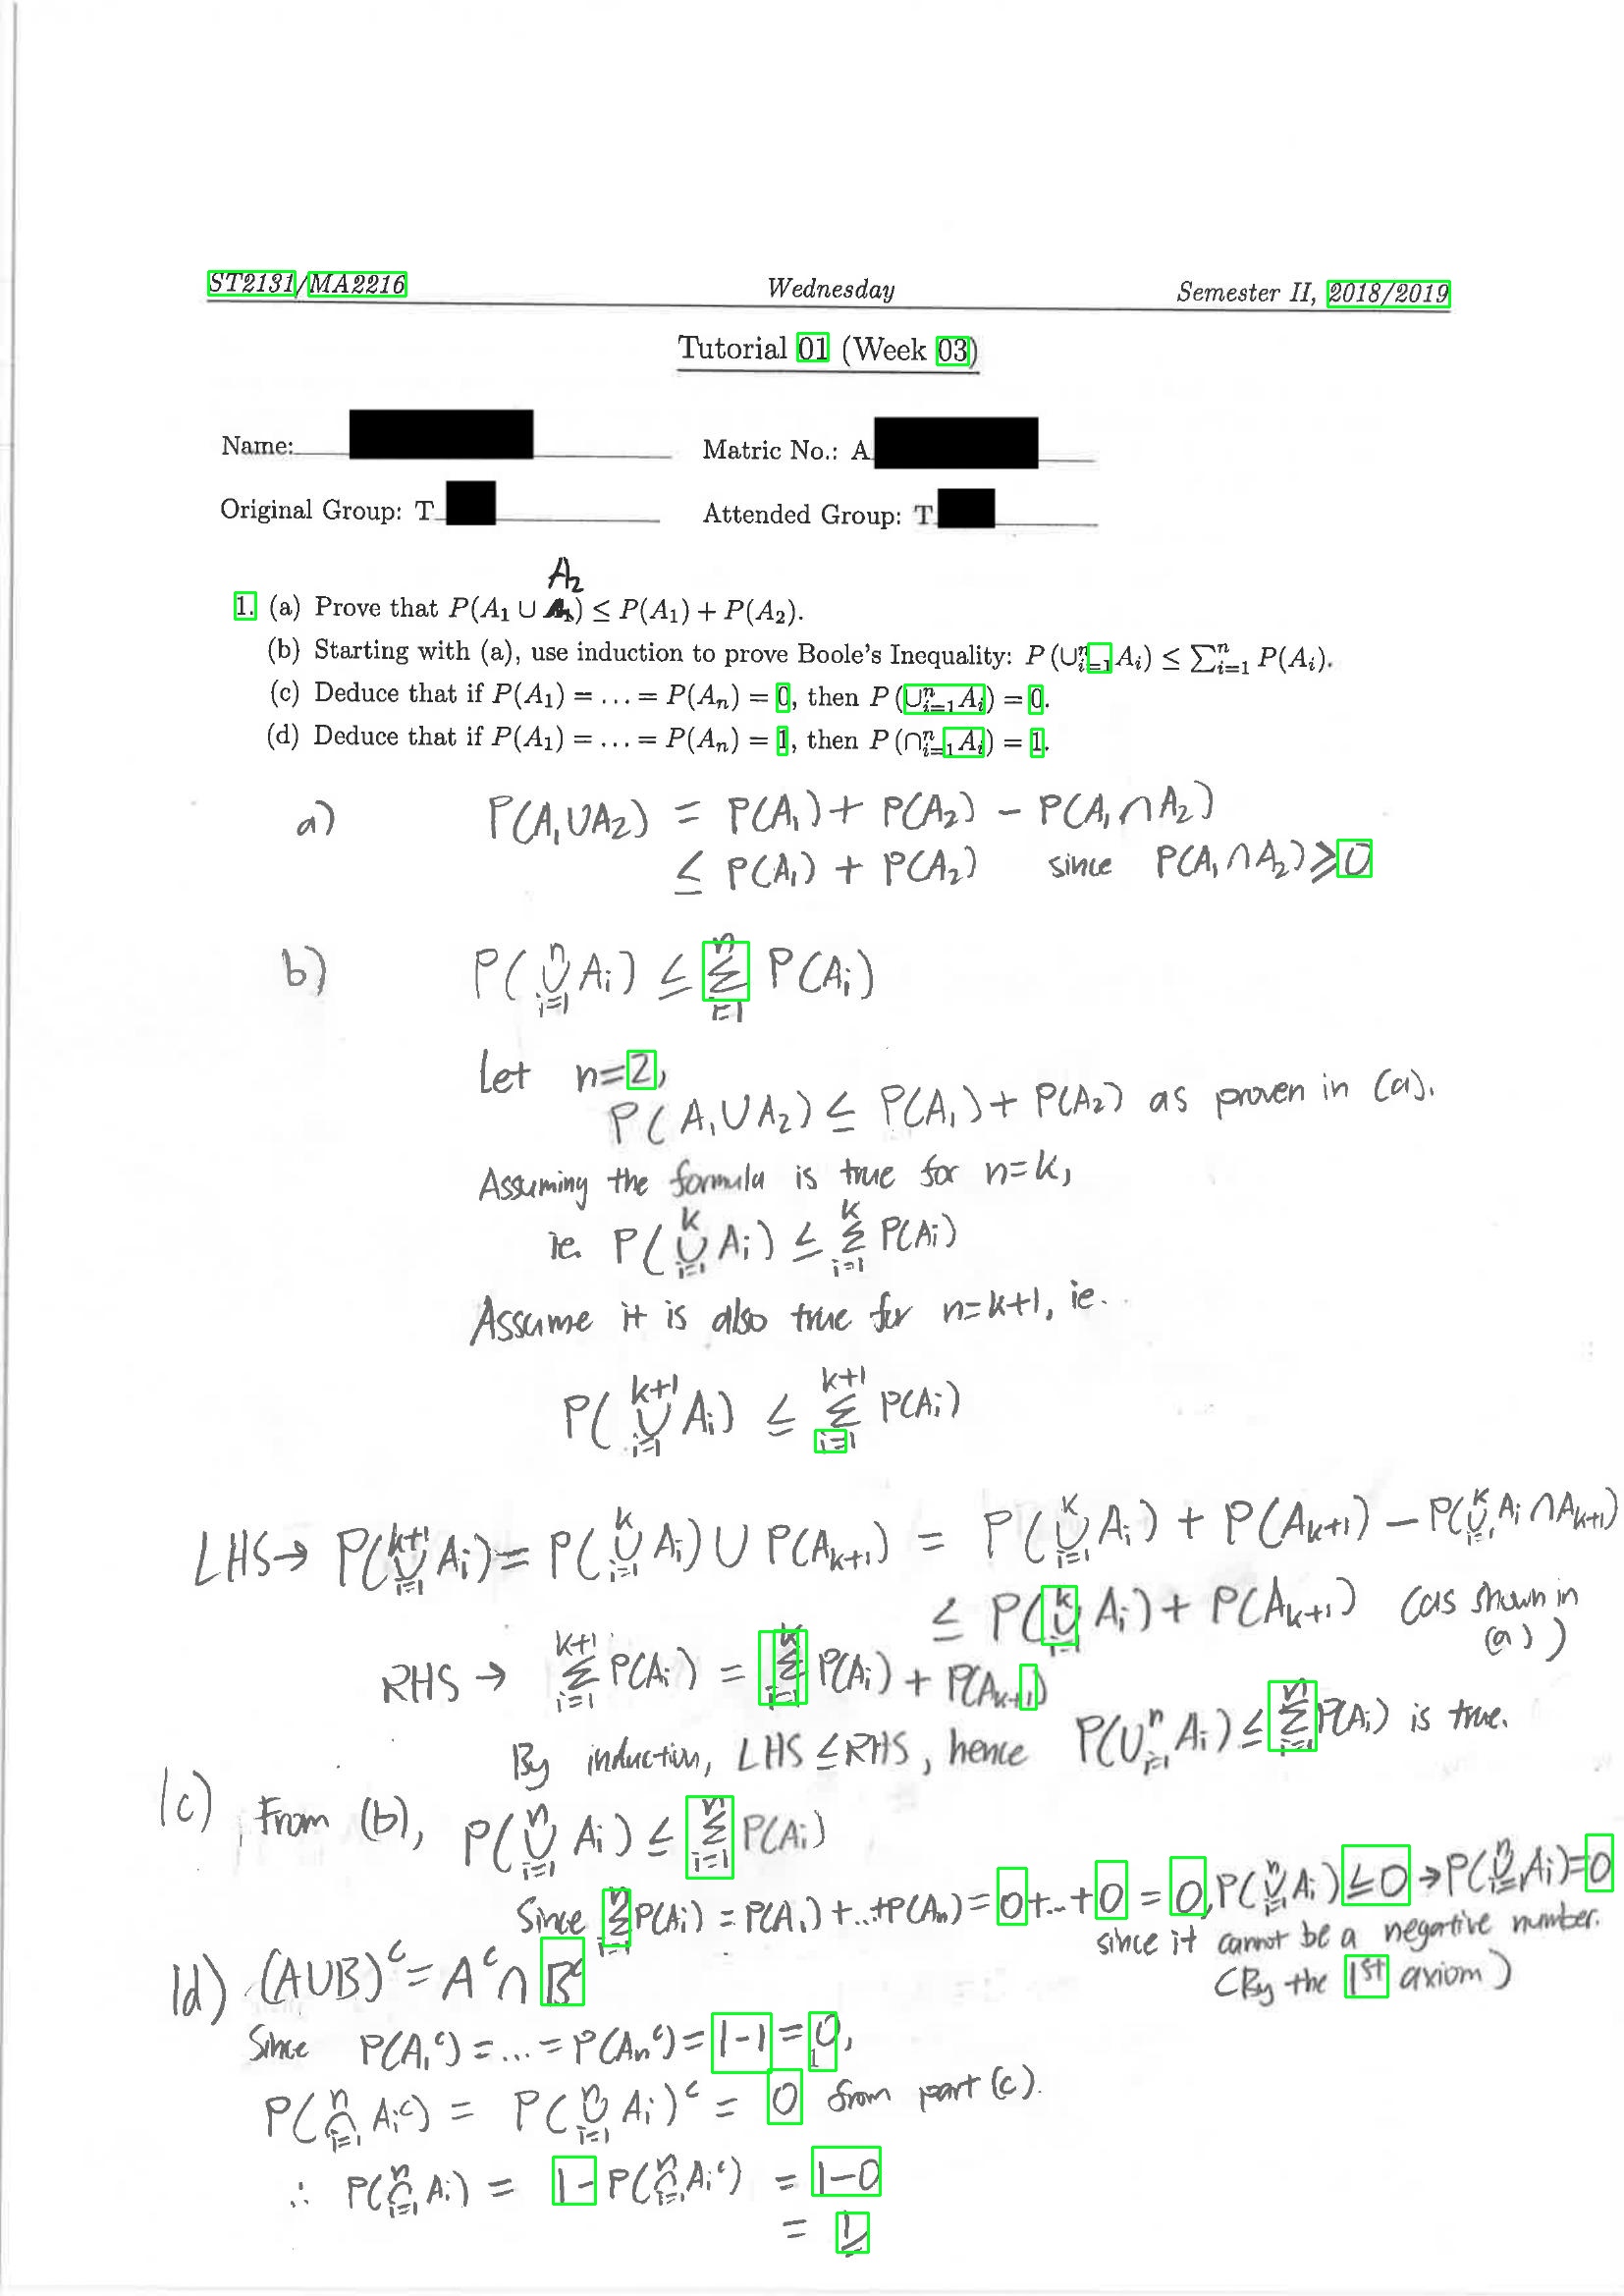 ST2131/MA2216 Wednesday Semester II, 2018/2019
Tutorial 01 (Week 03)
Name: Matric No.: A
Original Group: T Attended Group: T
A₂
1. (a) Prove that P(A₁ ∪ ) ≤ P(A₁) + P(A₂).
(b) Starting with (a), use induction to prove Boole's Inequality: P(∪ⁿᵢ₌₁Aᵢ) ≤ ∑ⁿᵢ₌₁ P(Aᵢ).
(c) Deduce that if P(A₁) = ... = P(Aₙ) = 0, then P(∪ⁿᵢ₌₁Aᵢ) = 0.
(d) Deduce that if P(A₁) = ... = P(Aₙ) = 1, then P(∩ⁿᵢ₌₁Aᵢ) = 1.
a) P(A₁∪A₂) = P(A₁) + P(A₂) − P(A₁∩A₂)
≤ P(A₁) + P(A₂) since P(A₁∩A₂) ⩾ 0
b) P(∪ⁿᵢ₌₁ Aᵢ) ≤ ∑ⁿᵢ₌₁ P(Aᵢ)
Let n=2,
P(A₁∪A₂) ≤ P(A₁) + P(A₂) as proven in (a).
Assuming the formula is true for n=k,
ie. P(∪ᵏᵢ₌₁ Aᵢ) ≤ ∑ᵏᵢ₌₁ P(Aᵢ)
Assume it is also true for n=k+1, ie.
P(∪ᵏ⁺¹ᵢ₌₁ Aᵢ) ≤ ∑ᵏ⁺¹ᵢ₌₁ P(Aᵢ)
LHS → P(∪ᵏ⁺¹ᵢ₌₁ Aᵢ) = P(∪ᵏᵢ₌₁ Aᵢ) ∪ P(Aₖ₊₁) = P(∪ᵏᵢ₌₁ Aᵢ) + P(Aₖ₊₁) − P(∪ᵏᵢ₌₁ Aᵢ ∩ Aₖ₊₁)
≤ P(∪ᵏᵢ₌₁ Aᵢ) + P(Aₖ₊₁) (as shown in (a))
RHS → ∑ᵏ⁺¹ᵢ₌₁ P(Aᵢ) = ∑ᵏᵢ₌₁ P(Aᵢ) + P(Aₖ₊₁)
By induction, LHS ≤ RHS, hence P(∪ⁿᵢ₌₁ Aᵢ) ≤ ∑ⁿᵢ₌₁ P(Aᵢ) is true.
1c) From (b), P(∪ⁿᵢ₌₁ Aᵢ) ≤ ∑ⁿᵢ₌₁ P(Aᵢ)
Since ∑ⁿᵢ₌₁ P(Aᵢ) = P(A₁) + ... + P(Aₙ) = 0 + ... + 0 = 0, P(∪ⁿᵢ₌₁ Aᵢ) ≤ 0 → P(∪ⁿᵢ₌₁ Aᵢ) = 0
since it cannot be a negative number.
(By the 1st axiom)
1d) (A∪B)ᶜ = Aᶜ ∩ Bᶜ
Since P(A₁ᶜ) = ... = P(Aₙᶜ) = 1−1 = 0,
P(∩ⁿᵢ₌₁ Aᵢᶜ) = P(∪ⁿᵢ₌₁ Aᵢ)ᶜ = 0 from part (c).
∴ P(∩ⁿᵢ₌₁ Aᵢ) = 1 − P(∩ⁿᵢ₌₁ Aᵢᶜ) = 1−0
= 1